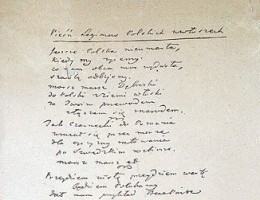 Pieśń Legionów Polskich we Włoszech
Jeszcze Polska nie umarła,
kiedy my żyjemy.
co nam obca moc wydarła,
szablą odbijemy.
marsz marsz Dąbrowski
do Polski z ziemi włoski
za Twoim przewodem
złączem się z narodem.
Jak Czarnecki do Poznania
wracał się przez morze
dla ojczyzny ratowania
po Szwedzkim
marsz marsz
Przejdziem Wisłę przejdziem Wartę
Będziem Polakami
dał nam przykład Bonaparte